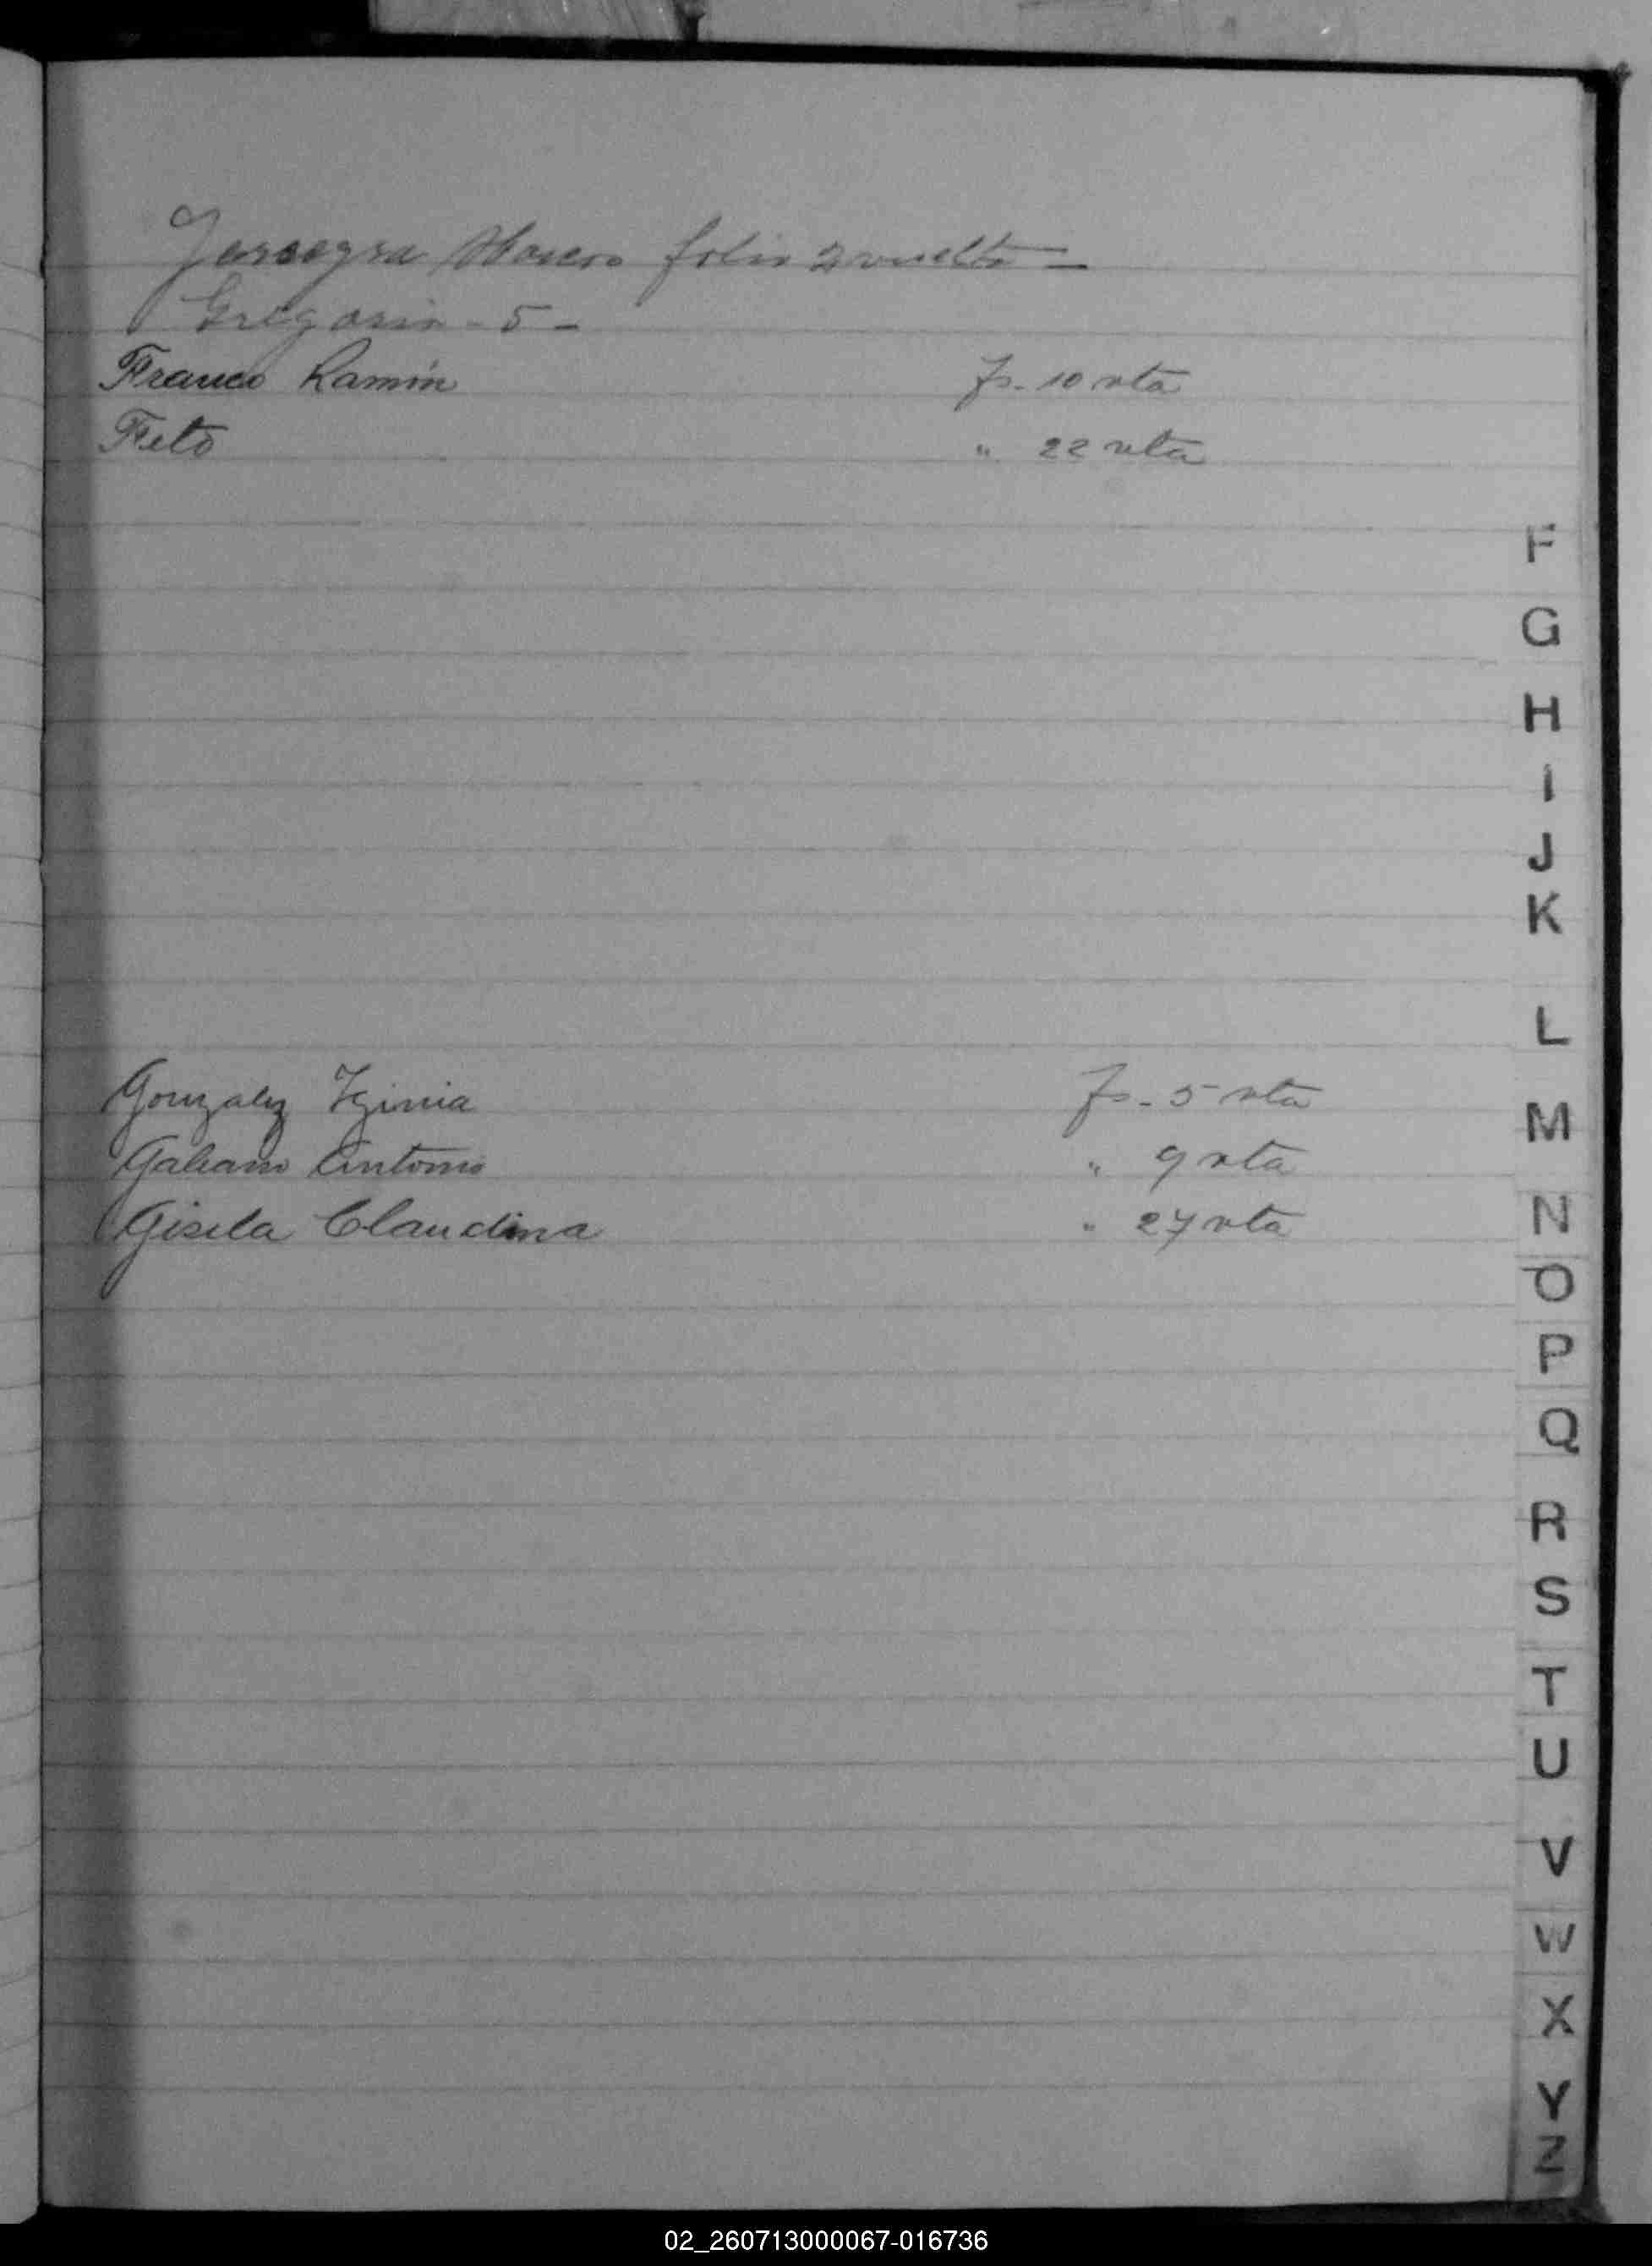 folio 2 vuelta -
Gregorio - 5 -
Franco Ramón fs. 10 vta
Feto " 22 vta
F
G
H
I
J
K
L
Gonzalez Iginia fs. 5 vta
M
Galiano Antonio " 9 vta
Gisela Claudina " 27 vta
N
O
P
Q
R
S
T
U
V
W
X
Y
Z
02_260713000067-016736